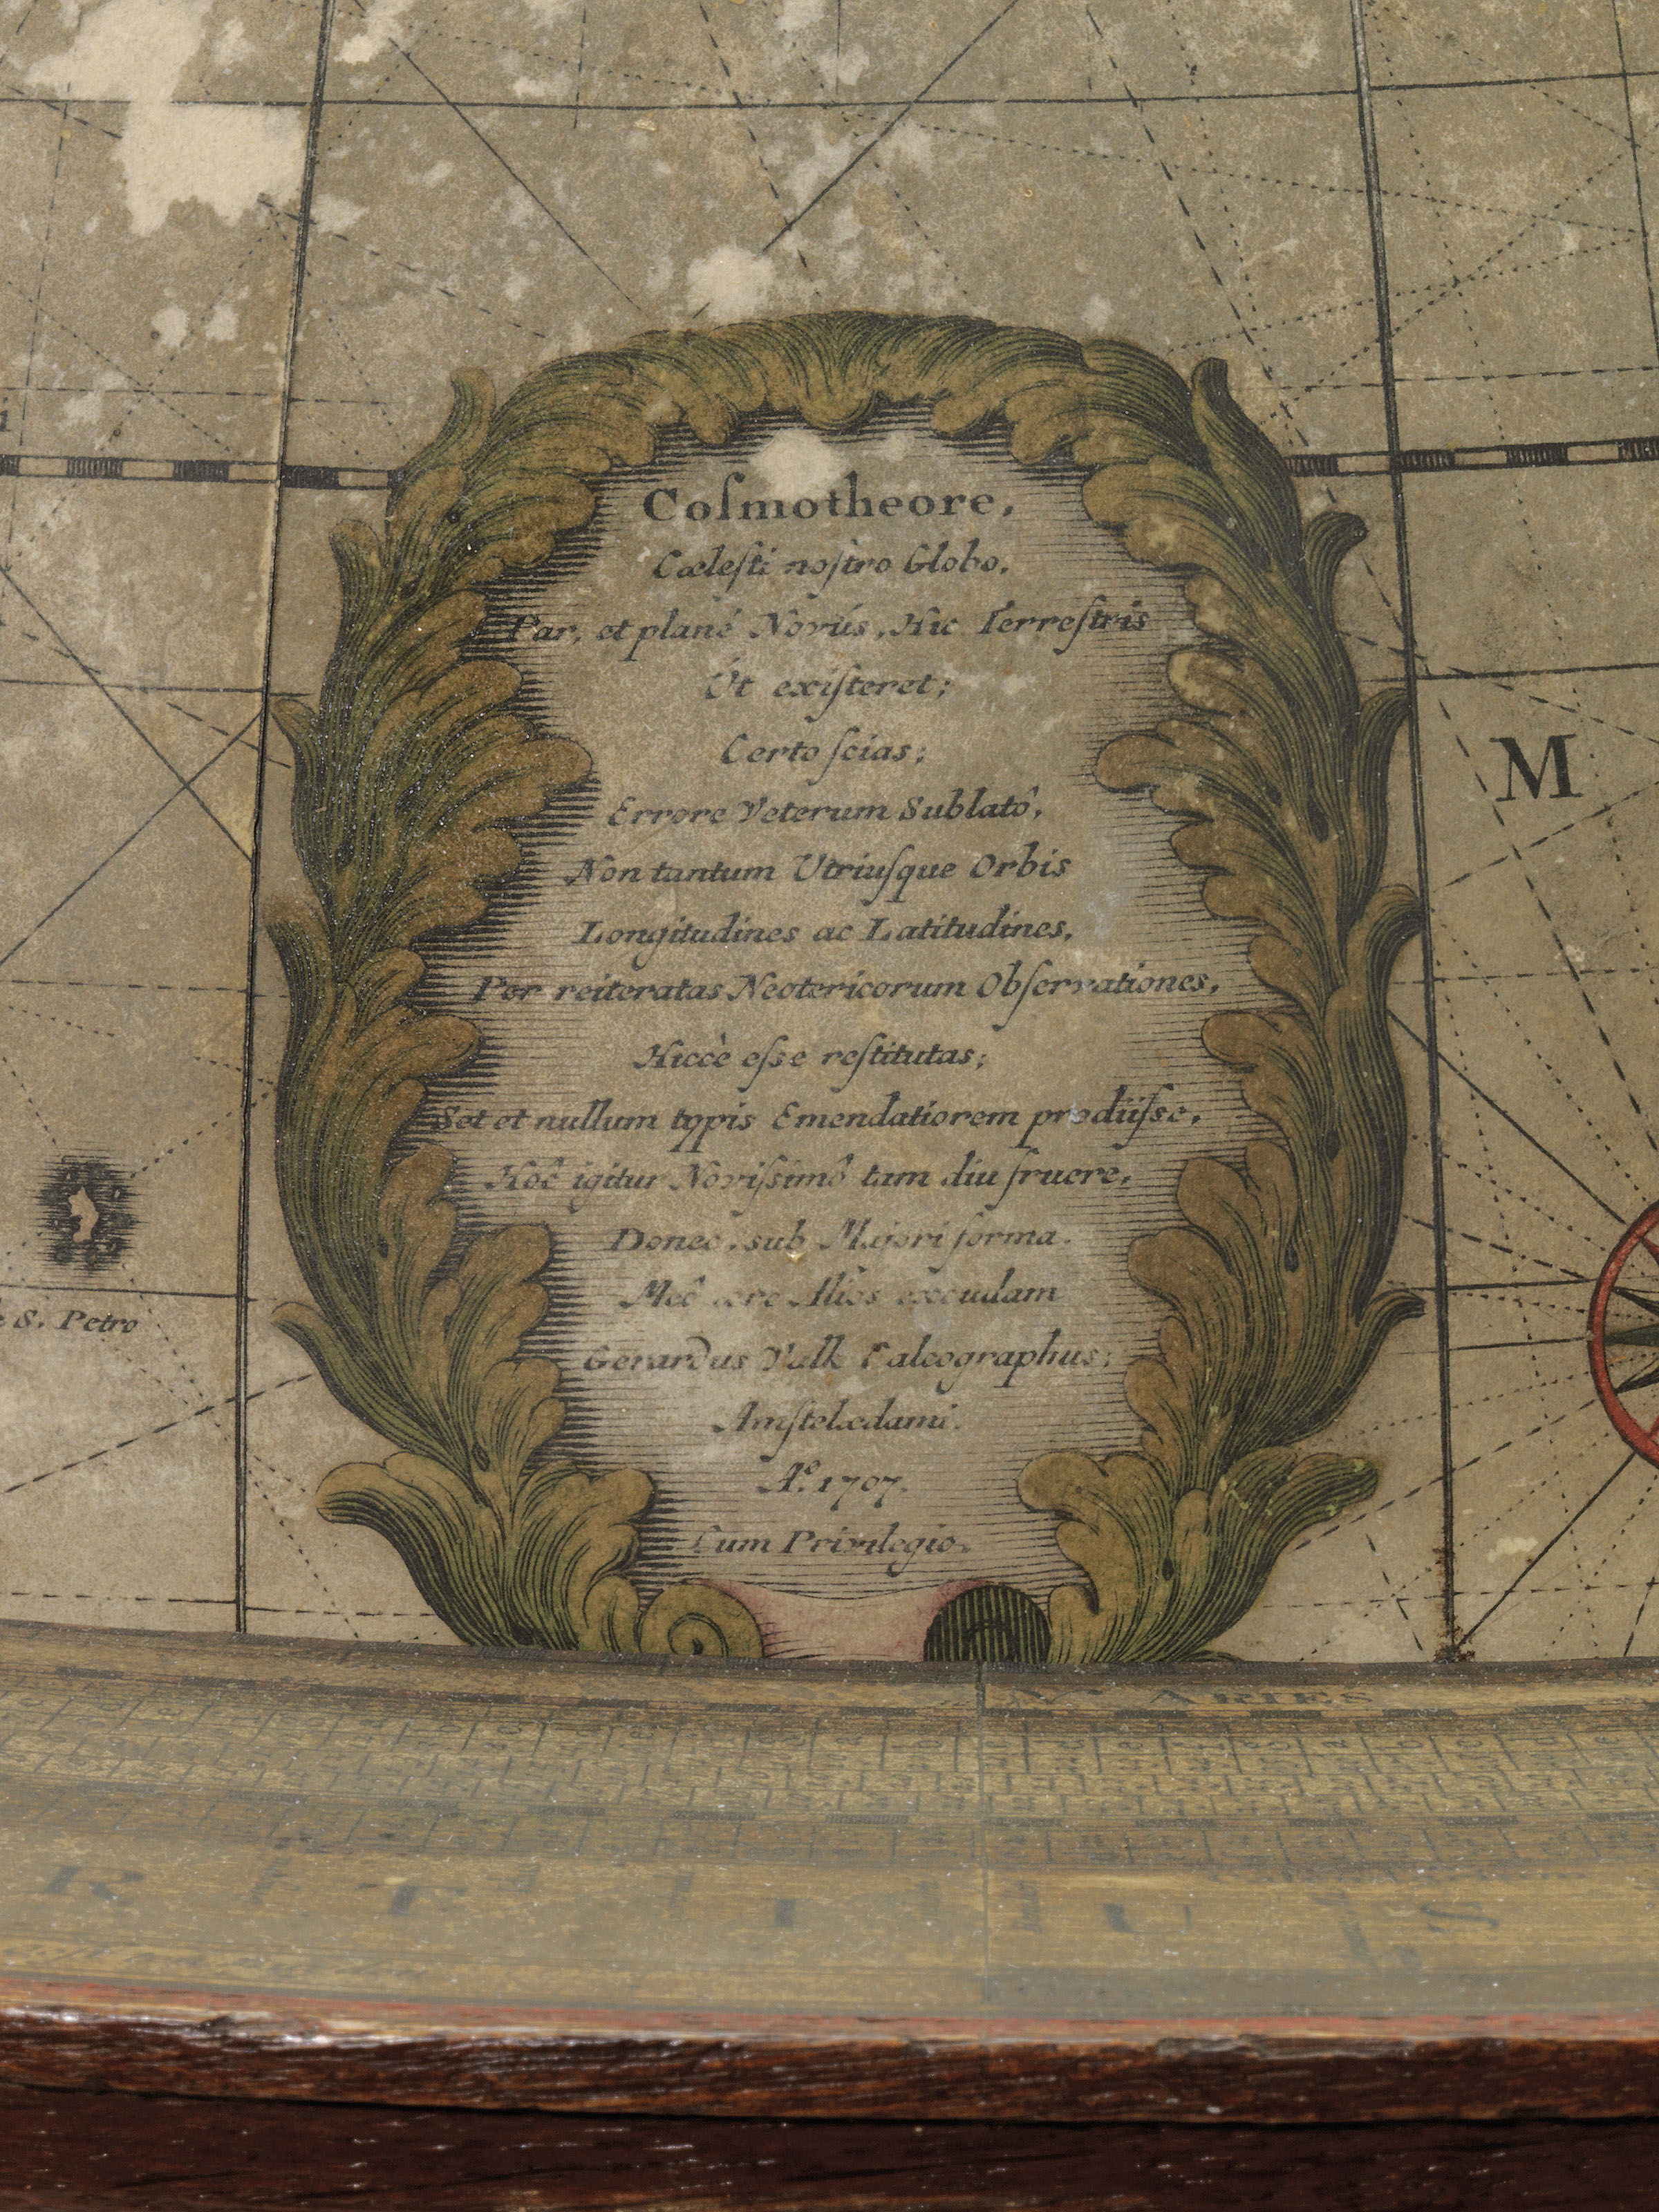 Coſmotheore,
Cæleſti noſtro Globo,
Par, et planè Novús, Hic Terreſtris
Út exiſteret;
Certo ſcias;
Errore Veterum Sublatô,
Non tantum Utriuſque Orbis
Longitudines ac Latitudines,
Per reiteratas Neotericorum Obſervationes,
Hiccè eſse reſtitutas;
Set et nullum typis Emendatiorem prodiiſse,
Hôc igitur Noviſsimô tam diu fruere,
Donec, sub Majori forma.
Meô ære Aliôs excudam
Gerardus Valk Calcographus;
Amſtelædami.
Aº. 1707.
Cum Privilegio.
M
S. Petro
ARIES